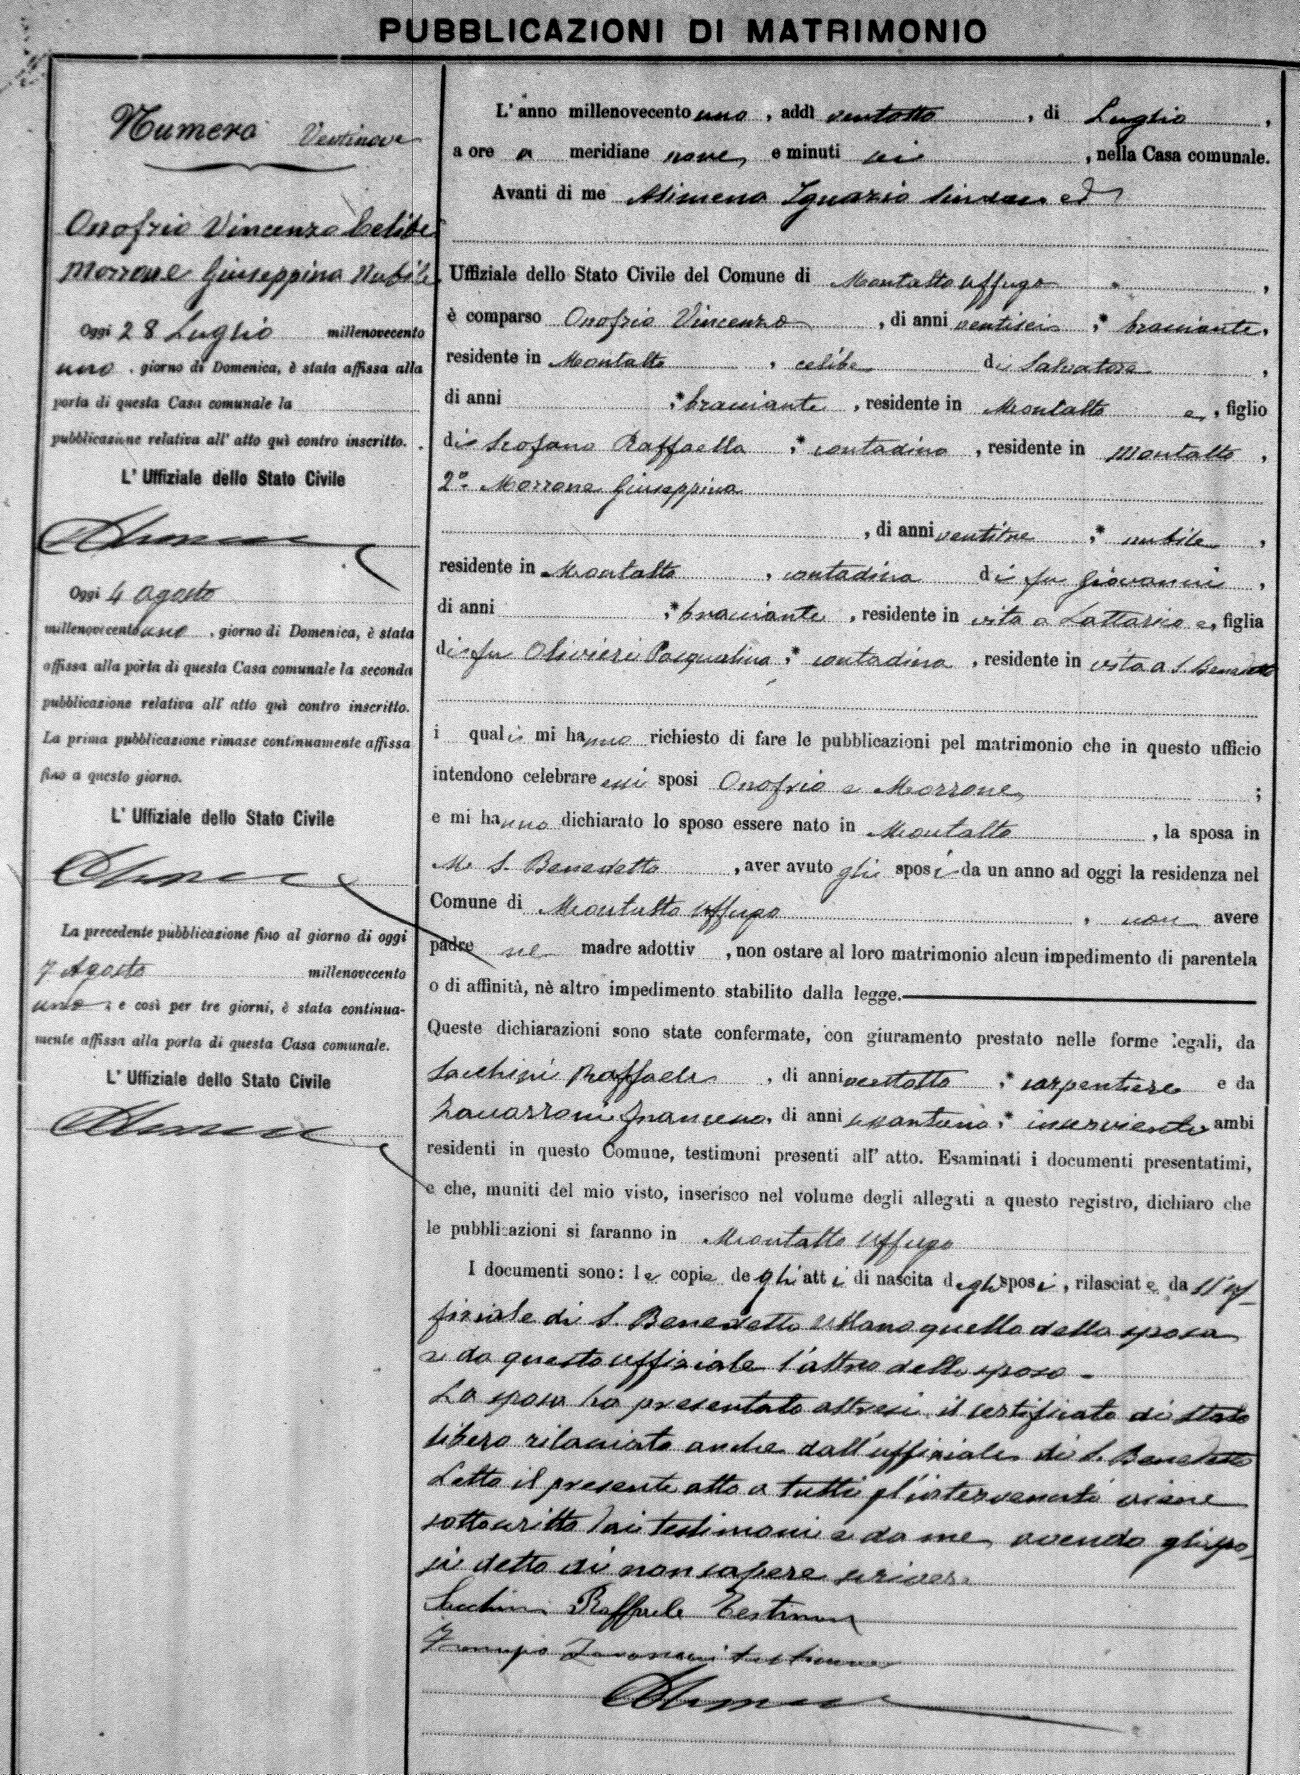 PUBBLICAZIONI DI MATRIMONIO
Numero Ventinove
Onofrio Vincenzo Celibe
Morrone Giuseppina Nubile
Oggi 28 Luglio millenovecento
uno, giorno di Domenica, è stata affissa alla
porta di questa Casa comunale la
pubblicazione relativa all' atto quì contro inscritto.
L' Uffiziale dello Stato Civile
Oggi 4 agosto
millenovecento uno, giorno di Domenica, è stata
affissa alla porta di questa Casa comunale la seconda
pubblicazione relativa all' atto quì contro inscritto.
La prima pubblicazione rimase continuamente affissa
fino a questo giorno.
L' Uffiziale dello Stato Civile
La precedente pubblicazione fino al giorno di oggi
7 Agosto millenovecento
uno, e così per tre giorni, è stata continua-
mente affissa alla porta di questa Casa comunale.
L' Uffiziale dello Stato Civile
L' anno millenovecento uno, addì ventotto, di Luglio,
a ore a meridiane nove, e minuti sei, nella Casa comunale.
Avanti di me Alimena Ignazio Sindaco ed
Uffiziale dello Stato Civile del Comune di Montalto Uffugo,
è comparso Onofrio Vincenzo, di anni ventisei, * bracciante,
residente in Montalto, celibe di Salvatore,
di anni , * bracciante, residente in Montalto e, figlio
di Scofano Raffaella, * contadina, residente in Montalto,
2º Morrone Giuseppina
, di anni ventitre, * nubile,
residente in Montalto, contadina di fu Giovanni,
di anni , * bracciante, residente in vita a Lattarico e, figlia
di fu Olivieri Pasqualina, * contadina, residente in vita a S. Benedetto
i quali mi hanno richiesto di fare le pubblicazioni pel matrimonio che in questo ufficio
intendono celebrare essi sposi Onofrio e Morrone;
e mi hanno dichiarato lo sposo essere nato in Montalto, la sposa in
S. Benedetto, aver avuto gli sposi da un anno ad oggi la residenza nel
Comune di Montalto Uffugo, non avere
padre ne madre adottiv , non ostare al loro matrimonio alcun impedimento di parentela
o di affinità, nè altro impedimento stabilito dalla legge.
Queste dichiarazioni sono state confermate, con giuramento prestato nelle forme legali, da
Sacchini Raffaele, di anni ventotto, * carpentiere e da
Zavarroni Francesco, di anni * inserviente ambi
residenti in questo Comune, testimoni presenti all' atto. Esaminati i documenti presentatimi,
e che, muniti del mio visto, inserisco nel volume degli allegati a questo registro, dichiaro che
le pubblicazioni si faranno in Montalto Uffugo
I documenti sono: le copie degli atti di nascita degli sposi, rilasciate da ll'uf-
fiziale di S. Benedetto Ullano quella della sposa
e da questo uffiziale l'altra dello sposo.
La sposa ha presentato altresi il certificato di stato
libero rilasciato anche dall'uffiziale di S. Benedetto
Letto il presente atto a tutti gl'intervenuti viene
sottoscritto dai testimoni e da me, avendo gli spo-
si detto di non sapere scrivere
Sacchini Raffaele Testimon
Zavarroni testimone